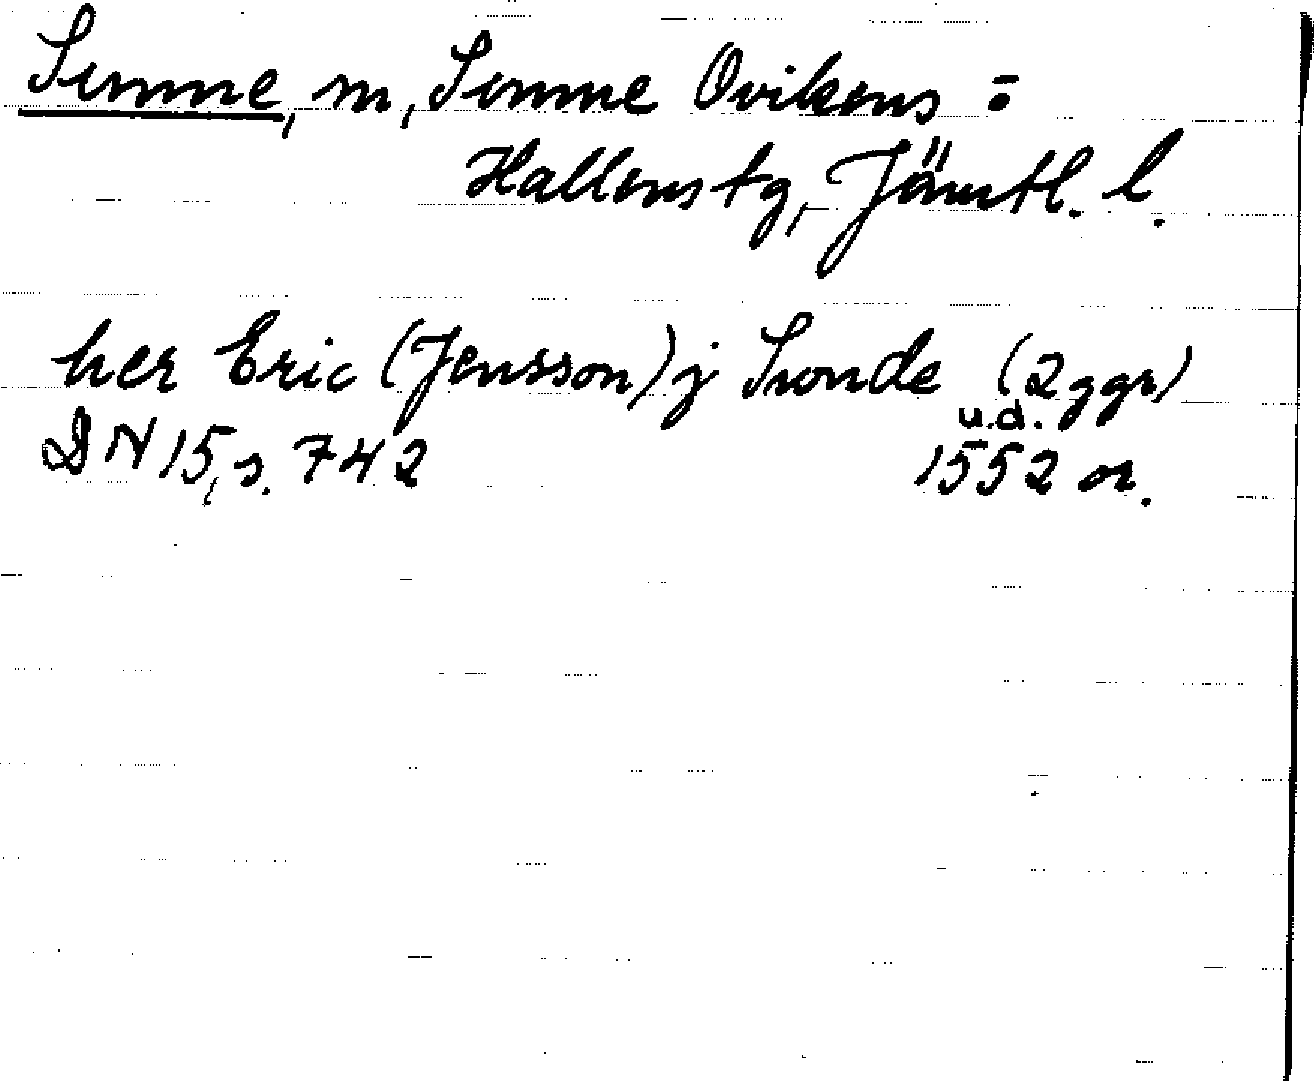 Sunne, sn, Sunne Ovikens =
Hallens tg, Jämtl. l.
her Eric (Jensson) j Swnde (2ggr)
u.d.
DN 15, s. 742 1552 or.